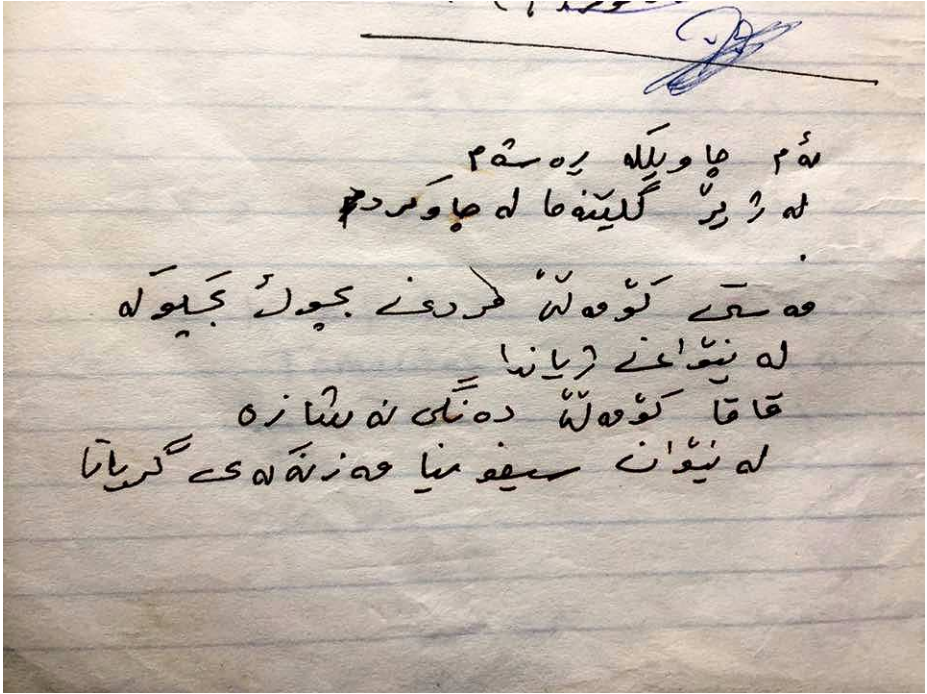 ئەم چاویلکە ڕەشەم
لە ژێر گلێنەما لە چاوکردم
مەستی کۆمەڵێ مردنی بچوک بچیوکە
لە نێوانی ژیاندا
قاقا کۆمەڵێ دەنگی نەشازە
لە نێوان سیفونیا مەزنەکەی گریانا